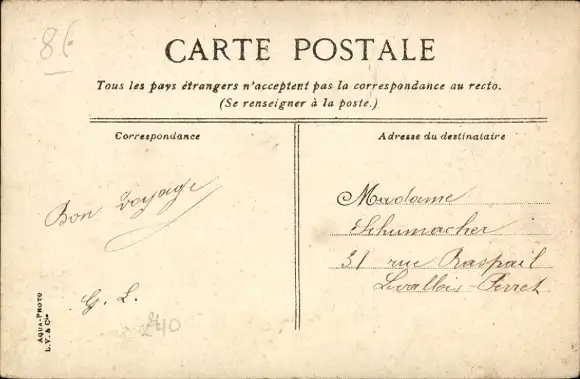 86
CARTE POSTALE
Tous les pays étrangers n'acceptent pas la correspondance au recto.
(Se renseigner à la poste.)
Correspondance
Adresse du destinataire
Bon voyage
G. L.
Madame
Schumacher
31 rue Raspail
Levallois-Perret
AQUA-PHOTO
L. V. & Cie